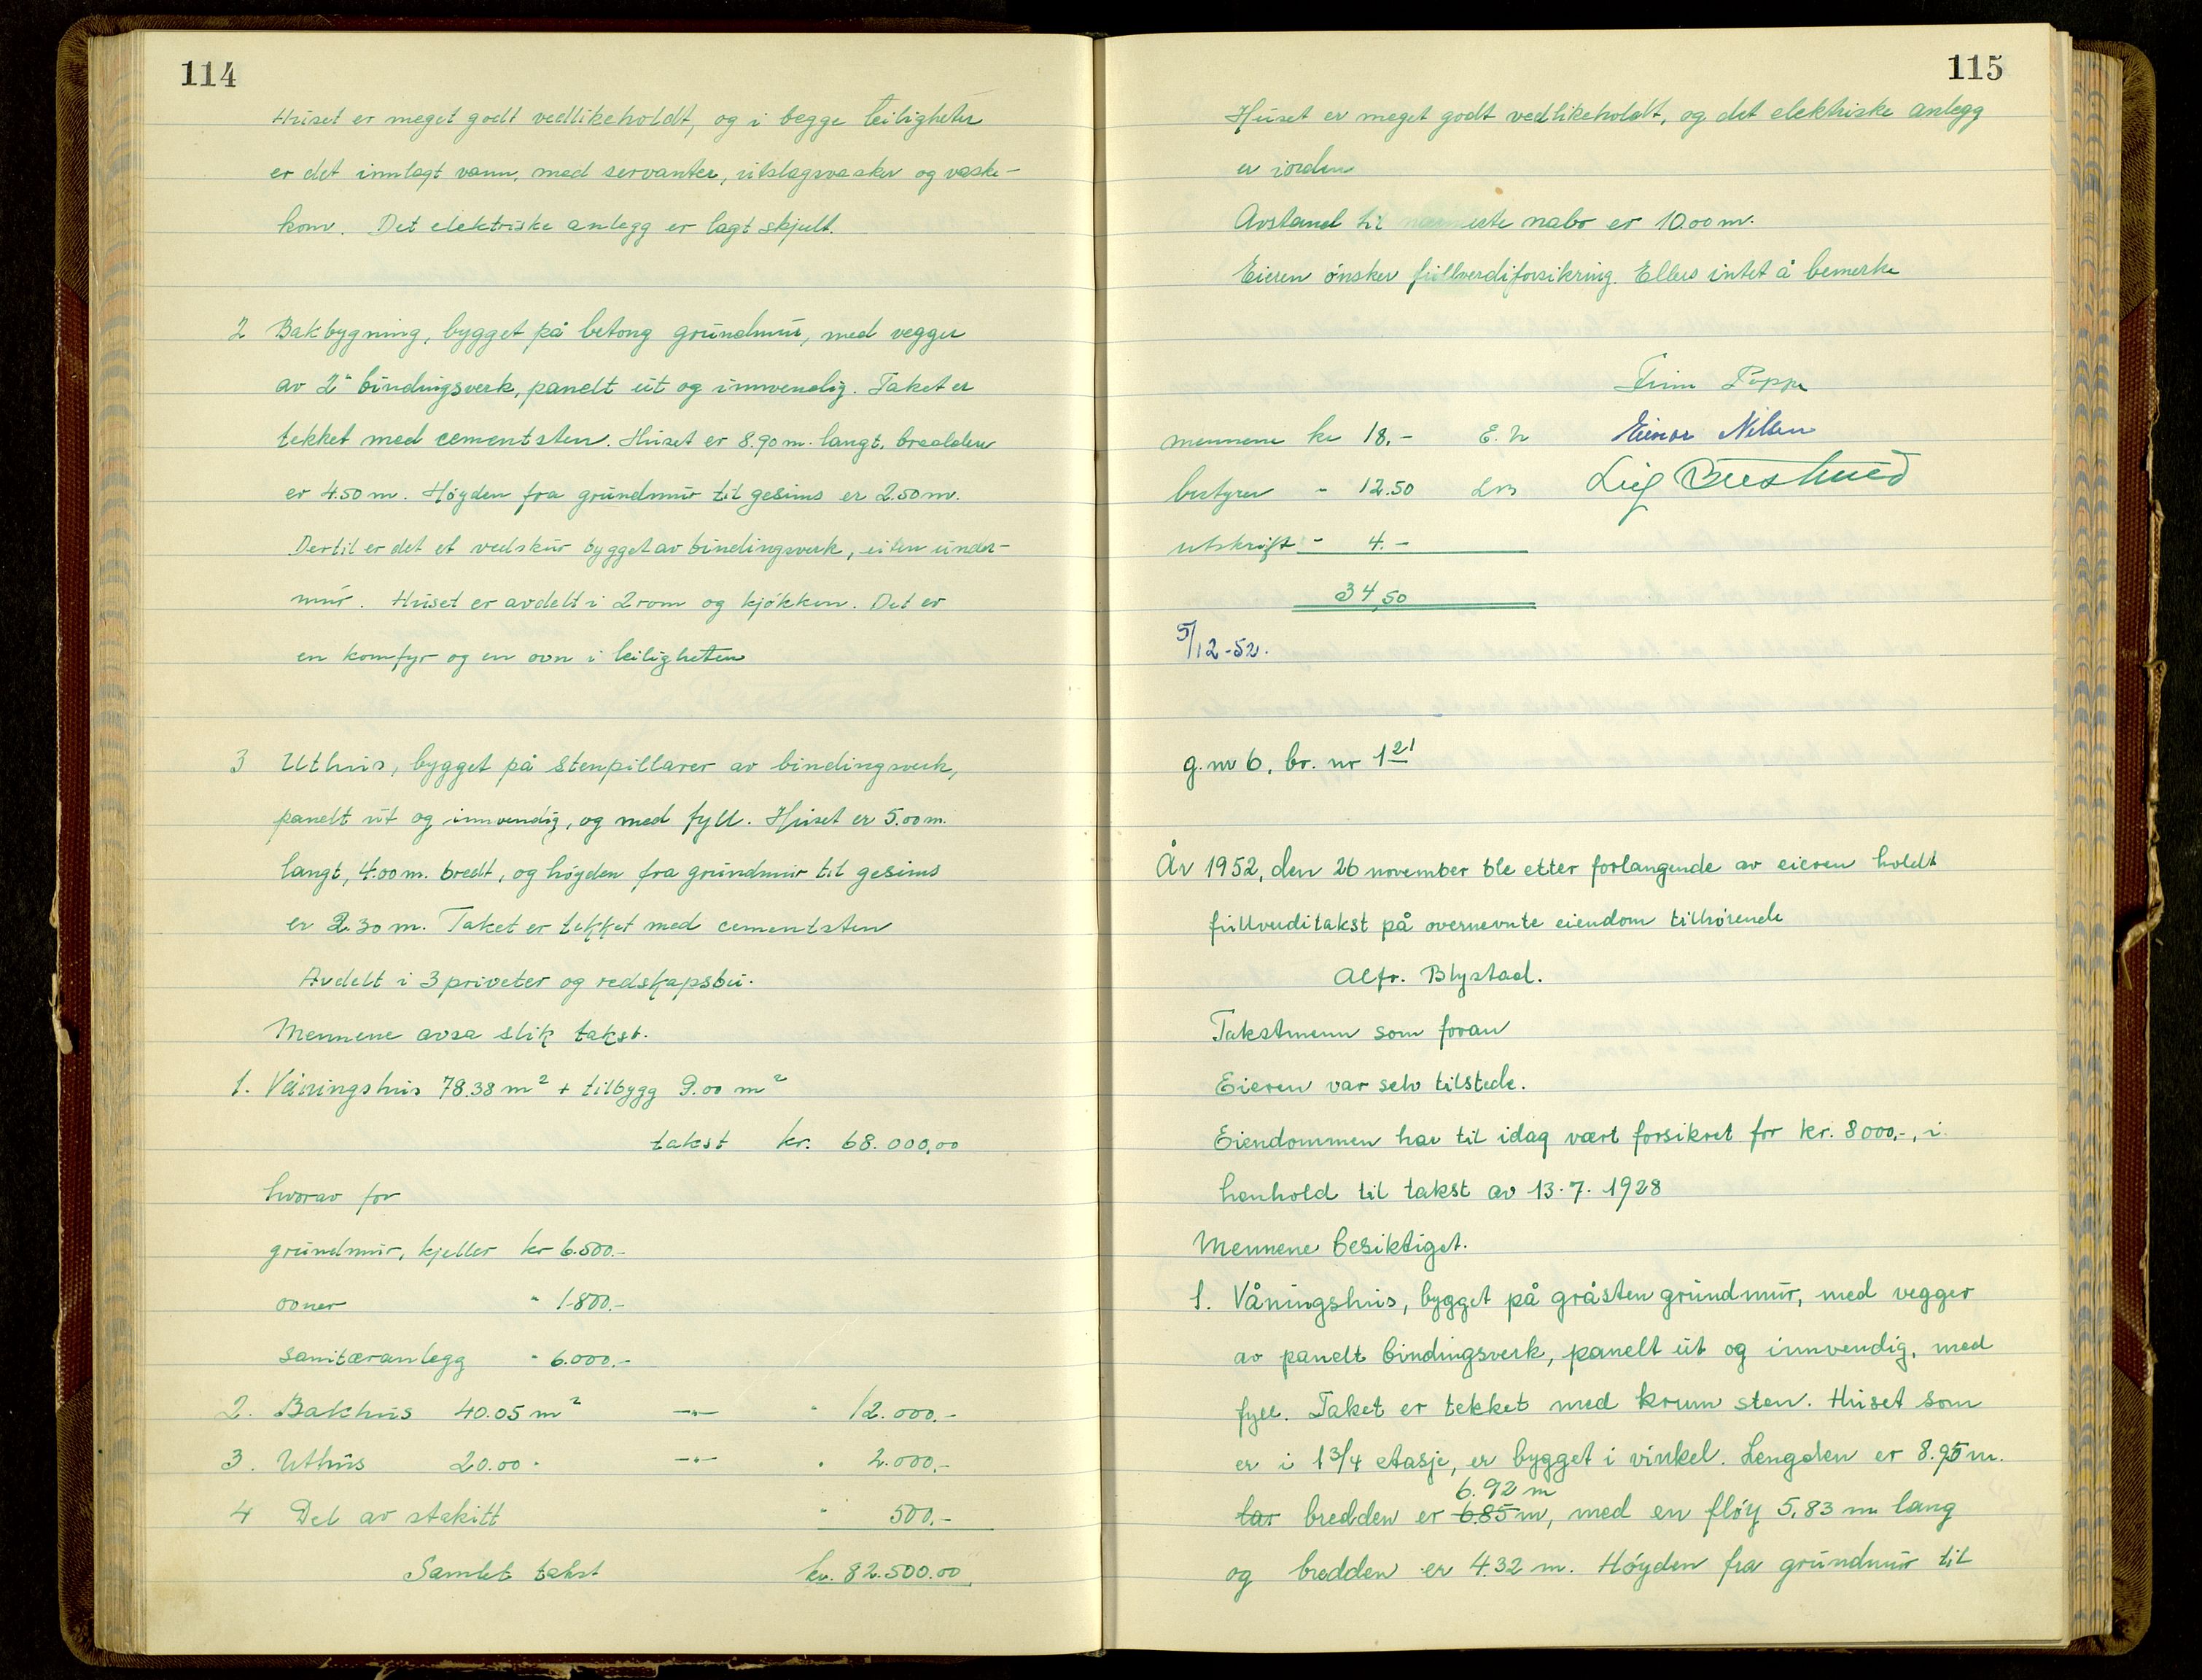 114
Huset er meget godt vedlikeholdt, og i begge leiligheter
er det innlagt vann, med servanter, utslagsvasker og vaske-
kom. Det elektriske anlegg er lagt skjult.
2 Bakbygning, bygget på betong grundmur, med vegger
av 2" bindingsverk, panelt ut og innvendig. Taket er
tekket med cementsten. Huset er 8.90 m. langt, bredden
er 4.50 m. Høyden fra grundmur til gesims er 2.50 m.
Dertil er det et vedskur bygget av bindingsverk, uten under-
mur. Huset er avdelt i 2 rom og kjøkken. Det er
en komfyr og en ovn i leiligheten
3 Uthus, bygget på stenpillarer av bindingsverk,
panelt ut og innvendig, og med fyll. Huset er 5.00 m.
langt, 4.00 m. bredt, og høyden fra grundmur til gesims
er 2.30 m. Taket er tekket med cementsten
Avdelt i 3 priveter og redskapsbu.
Mennene avsa slik takst.
1. Våningshus 78.38 m² + tilbygg 9.00 m²
takst kr. 68.000,00
hvorav for
grundmur, kjeller kr 6.500.-
ovner " 1800.-
sanitæranlegg " 6.000.-
2. Bakhus 40.05 m² —"— " 12.000.-
3. Uthus 20.00 " —"— " 2.000,-
4 Del av stakitt " 500.-
Samlet takst kr. 82.500.00
115
Huset er meget godt vedlikeholdt, og det elektriske anlegg
er iorden
Avstand til nærmeste nabo er 10.00 m.
Eieren ønsker fullverdiforsikring. Ellers intet å bemerke
Poppe
mennene kr 18.- E. N Einar Nilsen
bestyrer " 12.50 Leif
utskrift - 4.-
34,50
5/12-52.
g. nr 6, br. nr 1 21
År 1952, den 26 november ble etter forlangende av eieren holdt
fullverditakst på overnevnte eiendom tilhørende
Alfr. Blystad.
Takstmenn som foran
Eieren var selv tilstede.
Eiendommen har til idag vært forsikret for kr. 8000,-, i
henhold til takst av 13.7.1928
Mennene besiktiget.
1. Våningshus, bygget på gråsten grundmur, med vegger
av panelt bindingsverk, panelt ut og innvendig, med
fyll. Taket er tekket med krum sten. Huset som
er i 1 3/4 etasje, er bygget i vinkel. Lengden er 8.95 m.
6.92 m
bredden er 6.85 m, med en fløy 5,83 m lang
og bredden er 4.32 m. Høyden fra grundmur til